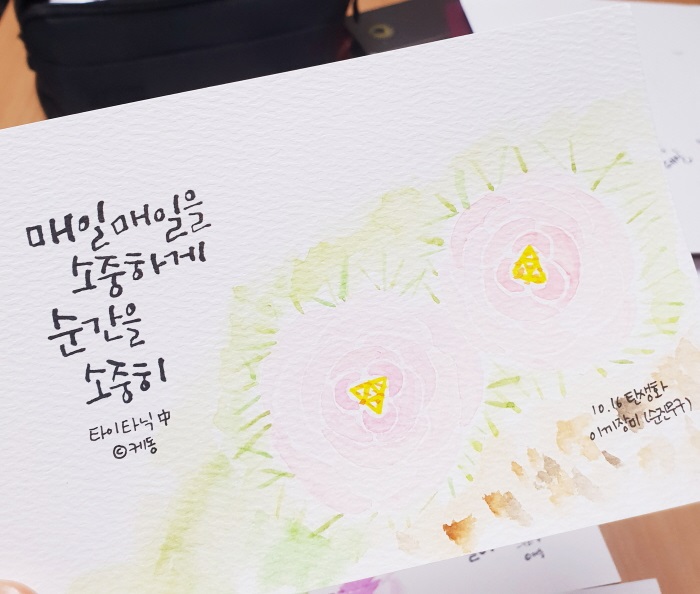 매일매일을
소중하게
순간을
소중히
타이타닉 中
©케동
10.16 탄생화
이끼장미 (순진무구)